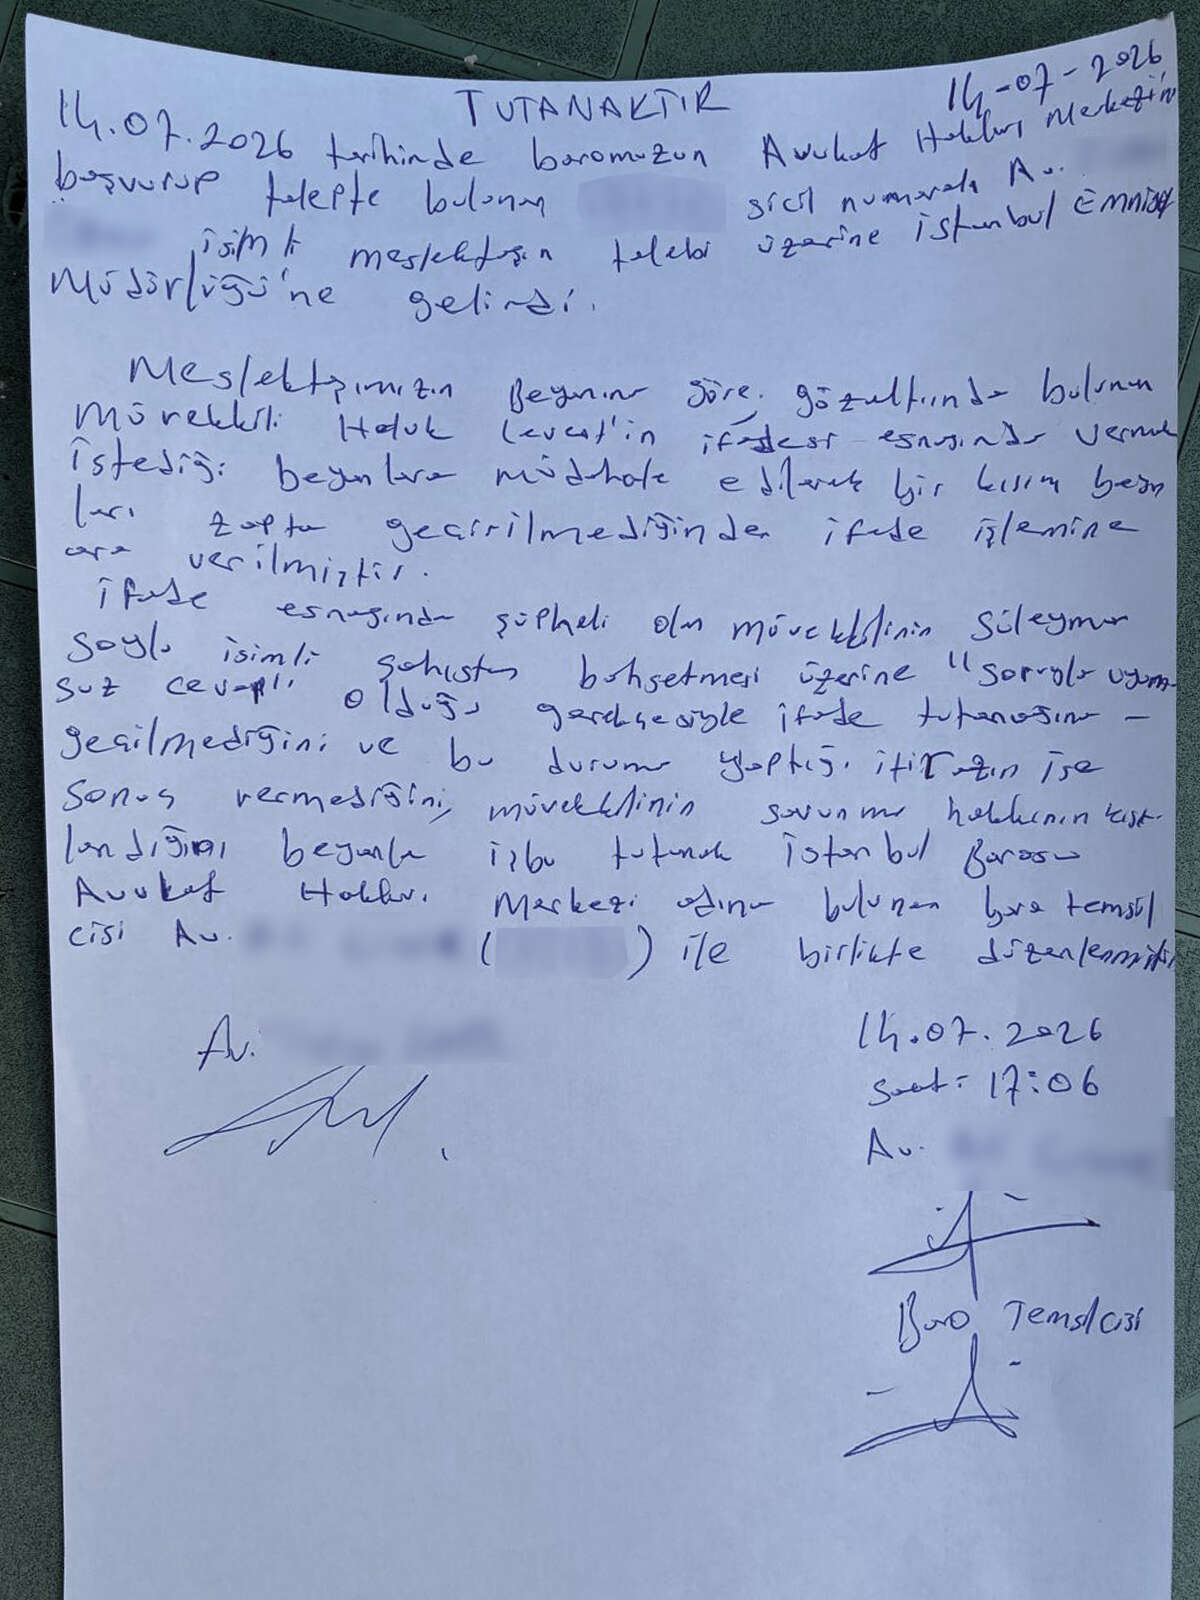 TUTANAKTIR
14-07-2026
14.07.2026 tarihinde baromuzun Avukat Hakları Merkezin
başvurup talepte bulunan sicil numaralı Av.
isimli meslektaşın talebi üzerine İstanbul Emniyet
Müdürlüğü'ne gelindi.
Meslektaşımızın Beyanına göre, gözaltında bulunan
Müvekkili Haluk Levent'in ifadesi esnasında vermek
istediği beyanlara müdahale edilerek bir kısım beyan
ları zapta geçirilmediğinden ifade işlemine
ara verilmiştir.
İfade esnasında şüpheli olan müvekkilinin Süleyman
Soylu isimli şahıstan bahsetmesi üzerine "Soruyla uyum
suz cevap" olduğu gerekçesiyle ifade tutanağına -
geçilmediğini ve bu duruma yaptığı itirazın ise
sonuç vermediğini, müvekkilinin savunma hakkının kısıt-
landığını beyanla işbu tutanak İstanbul Barosu
Avukat Hakları Merkezi adına bulunan baro temsil
cisi Av. ( ) ile birlikte düzenlenmiştir
Av.
14.07.2026
Saat: 17:06
Av.
Baro Temsilcisi